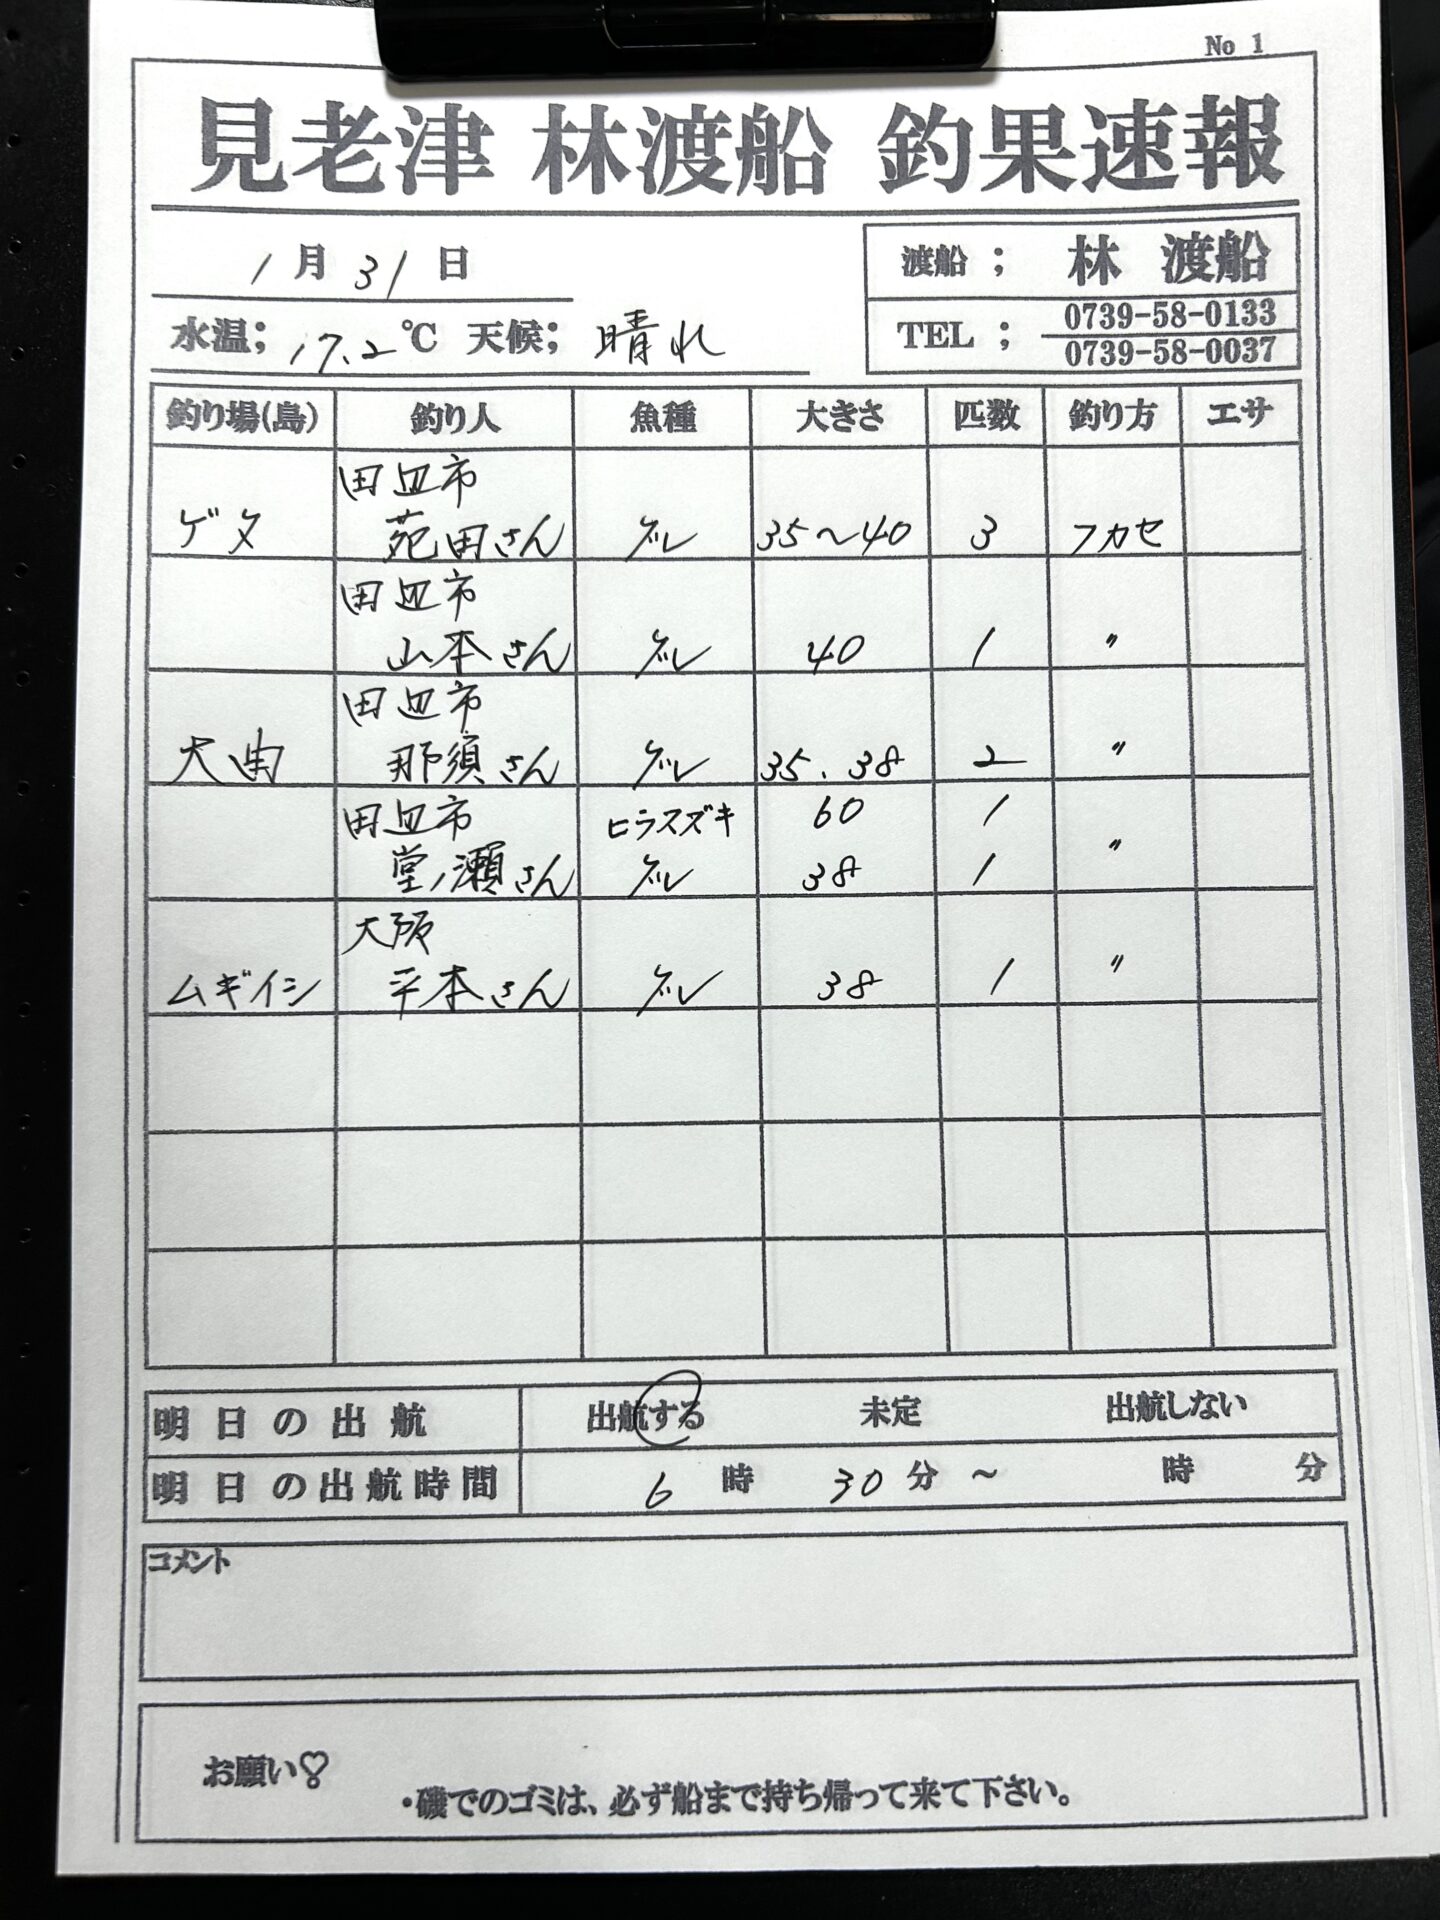 No 1
見老津 林渡船 釣果速報
1月31日
渡船； 林 渡船
水温；17.2℃ 天候；晴れ
TEL； 0739-58-0133
0739-58-0037
釣り場(島) 釣り人 魚種 大きさ 匹数 釣り方 エサ
田辺市
ゲタ 苑田さん グレ 35〜40 3 フカセ
田辺市
山本さん グレ 40 1 〃
田辺市
大曲 那須さん グレ 35、38 2 〃
田辺市 ヒラスズキ 60 1
堂ノ瀬さん グレ 38 1 〃
大阪
ムギイシ 平本さん グレ 38 1 〃
明日の出航 出航する 未定 出航しない
明日の出航時間 6時30分～ 時 分
コメント
お願い♡
・磯でのゴミは、必ず船まで持ち帰って来て下さい。